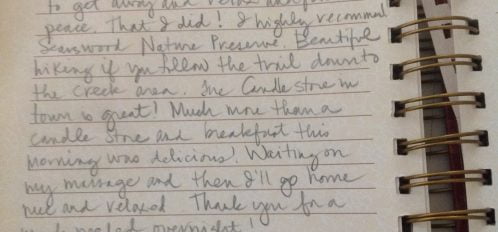 to get away and relax and
peace. That I did! I highly recommend
Nature Preserve. Beautiful
hiking if you follow the trail down to
the creek area. The Candle store in
town is great! Much more than a
candle store and breakfast this
morning was delicious! Waiting on
my massage and then I'll go home
nice and relaxed. Thank you for a
much needed overnight!